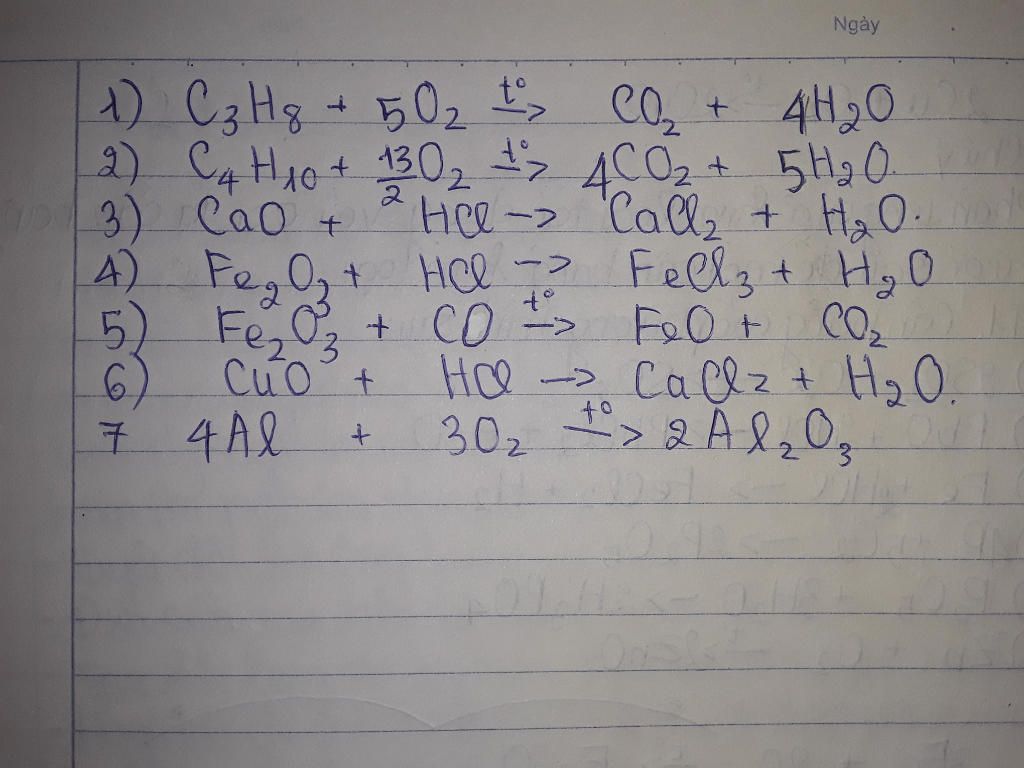 Ngày
1) C₃H₈ + 5O₂ t°→ CO₂ + 4H₂O
2) C₄H₁₀ + 13/2 O₂ t°→ 4CO₂ + 5H₂O.
3) CaO + HCl → CaCl₂ + H₂O.
4) Fe₂O₃ + HCl → FeCl₃ + H₂O
5) Fe₂O₃ + CO t°→ FeO + CO₂
6) CuO + HCl → CaCl₂ + H₂O.
7 4Al + 3O₂ t°→ 2Al₂O₃